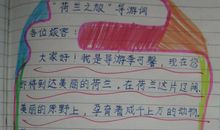 "荷兰之旅"导游词
各位嫔客：
大家好！我是导游李可馨，现在您
即将到达美丽的荷兰，在荷兰这片辽阔
美丽的原野上，孕育着成千上万的动物